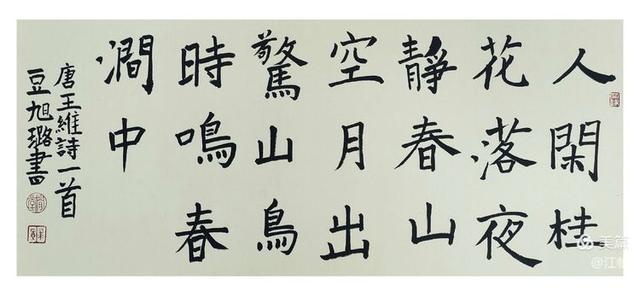 人閑桂
花落夜
靜春山
空月出
驚山鳥
時鳴春
澗中
唐王維詩一首
豆旭璐書
美篇